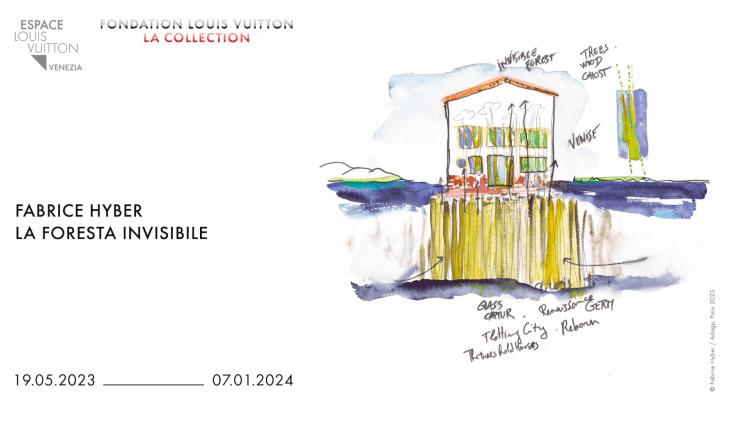 ESPACE
LOUIS
VUITTON
VENEZIA
FONDATION LOUIS VUITTON
LA COLLECTION
FABRICE HYBER
LA FORESTA INVISIBILE
19.05.2023
07.01.2024
INVISIBLE
FOREST
TREES
WOOD
GHOST
VENISE
GLASS
Renaissance
GERM
City . Reborn
© Fabrice Hyber / Adagp, Paris 2023